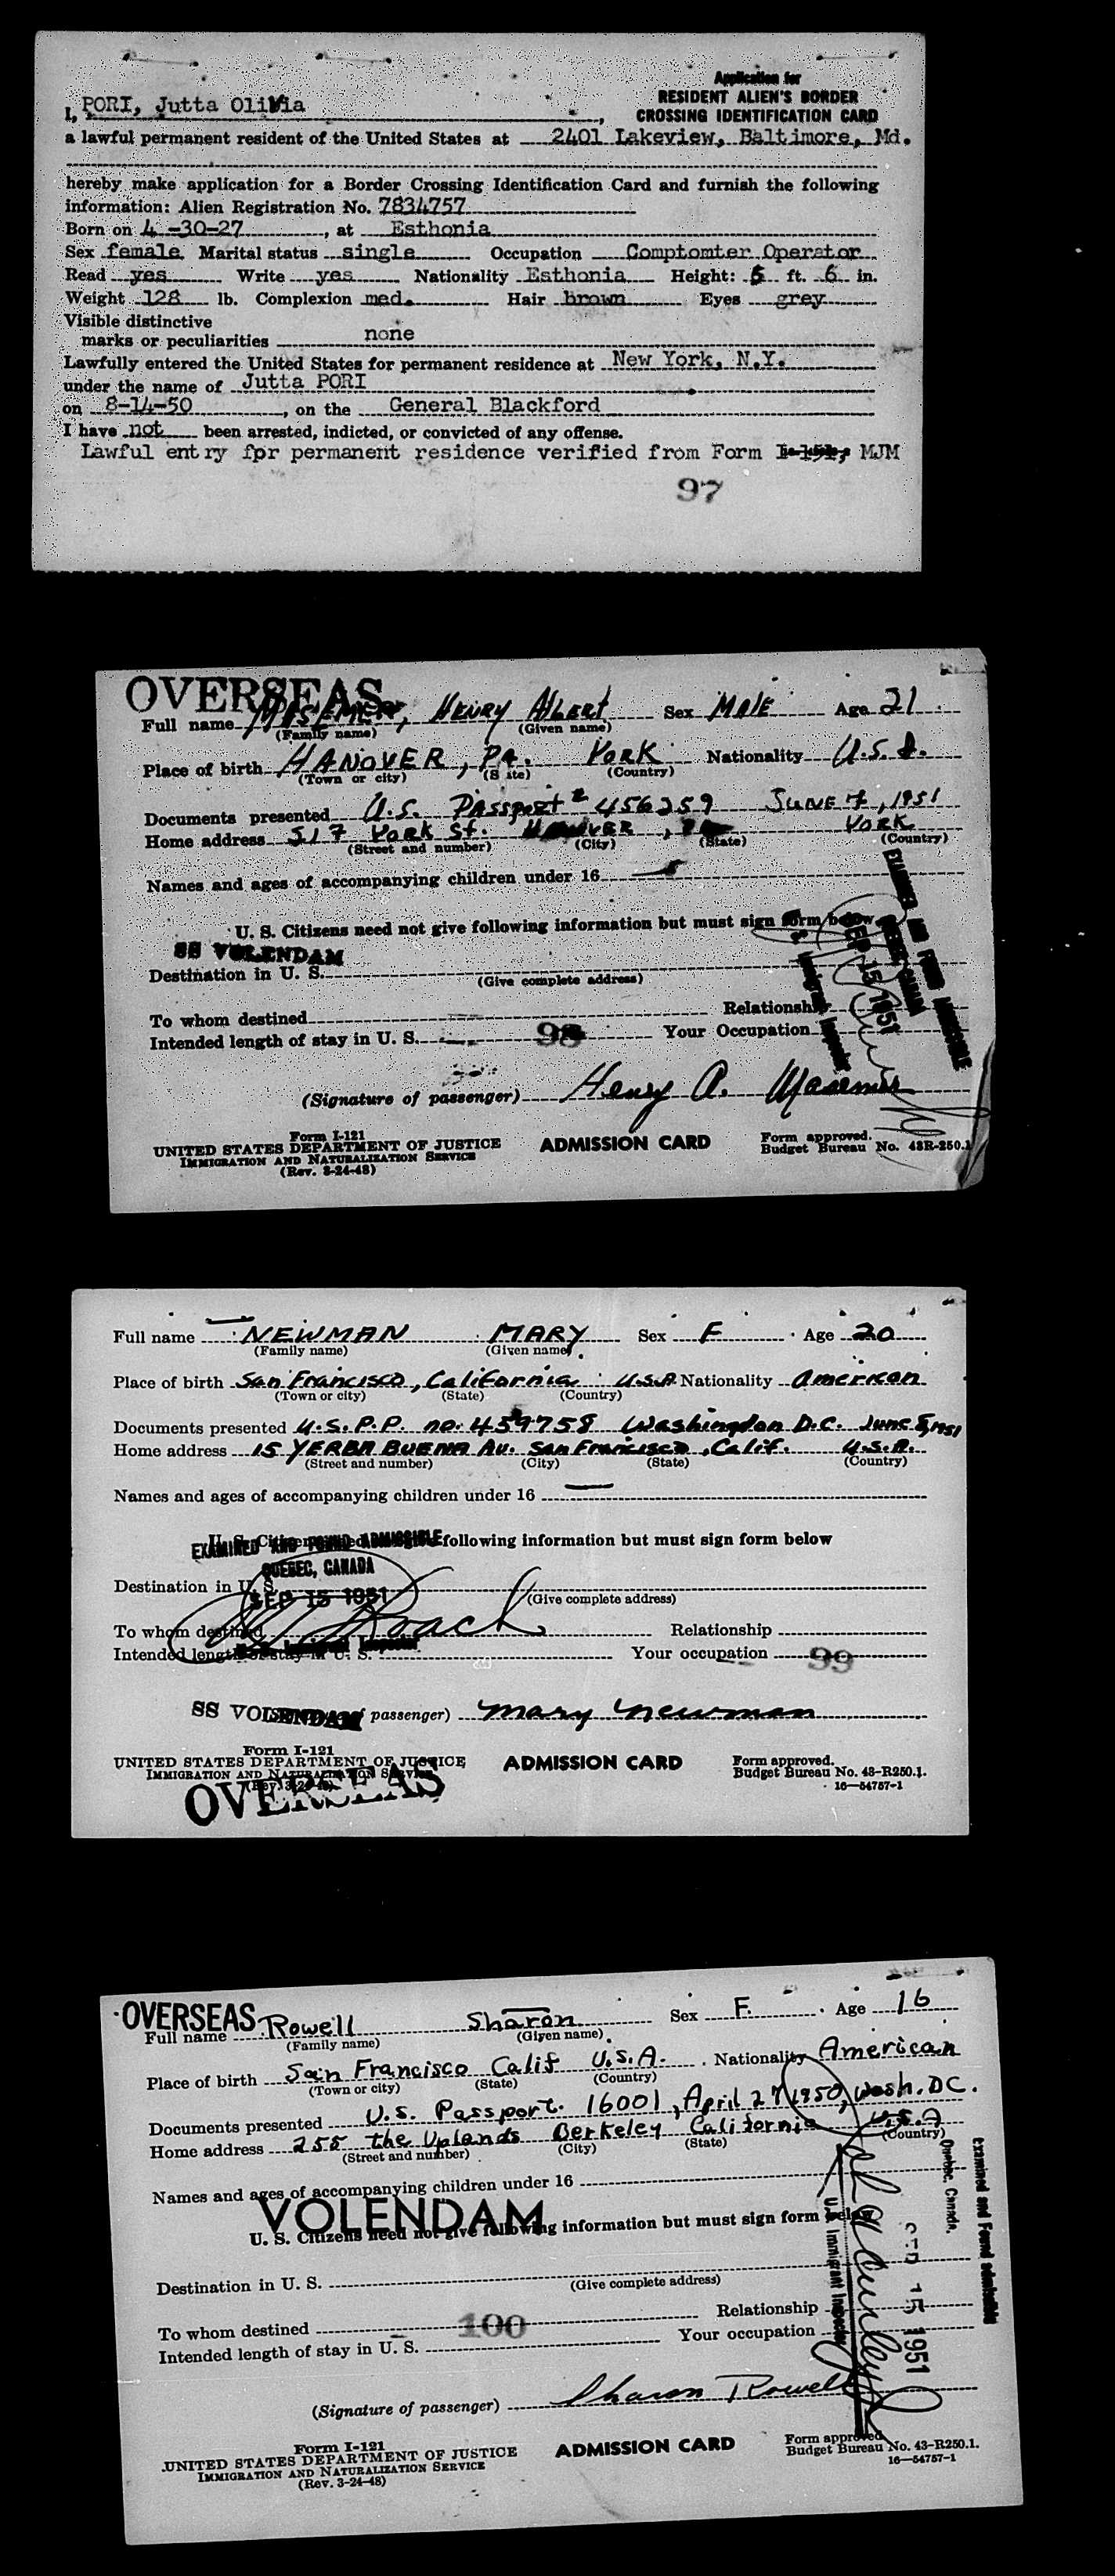 Application for
RESIDENT ALIEN'S BORDER
CROSSING IDENTIFICATION CARD
I, PORI, Jutta Olivia,
a lawful permanent resident of the United States at 2401 Lakeview, Baltimore, Md.
hereby make application for a Border Crossing Identification Card and furnish the following
information: Alien Registration No. 7834757
Born on 4-30-27, at Esthonia
Sex female Marital status single Occupation Comptomter Operator
Read yes Write yes Nationality Esthonia Height: 5 ft. 6 in.
Weight 128 lb. Complexion med. Hair brown Eyes grey
Visible distinctive
marks or peculiarities none
Lawfully entered the United States for permanent residence at New York, N.Y.
under the name of Jutta PORI
on 8-14-50, on the General Blackford
I have not been arrested, indicted, or convicted of any offense.
Lawful entry for permanent residence verified from Form I-151, MJM
97
OVERSEAS
Full name MASEMER, HENRY ALBERT Sex MALE Age 21
(Family name) (Given name)
Place of birth HANOVER, PA. YORK Nationality U.S.A.
(Town or city) (State) (Country)
Documents presented U.S. Passport # 456259 JUNE 7, 1951
Home address 517 York St. HANOVER, PA YORK
(Street and number) (City) (State) (Country)
Names and ages of accompanying children under 16
U. S. Citizens need not give following information but must sign form below
SS VOLENDAM
Destination in U. S.
(Give complete address)
EXAMINED AND FOUND ADMISSIBLE
QUEBEC, CANADA
SEP 15 1951
Immigrant Inspector
To whom destined Relationship
Intended length of stay in U. S. 98 Your Occupation
(Signature of passenger) Henry A. Masemer
Form I-121
UNITED STATES DEPARTMENT OF JUSTICE ADMISSION CARD Form approved.
IMMIGRATION AND NATURALIZATION SERVICE Budget Bureau No. 43R-250.1
(Rev. 3-24-48)
Full name NEWMAN MARY Sex F Age 20
(Family name) (Given name)
Place of birth San Francisco, California U.S.A. Nationality American
(Town or city) (State) (Country)
Documents presented U.S.P.P. no. 459758 Washington D.C. June 8, 1951
Home address 15 YERBA BUENA Av. San Francisco, Calif. U.S.A.
(Street and number) (City) (State) (Country)
Names and ages of accompanying children under 16
U. S. Citizens need not give following information but must sign form below
EXAMINED AND FOUND ADMISSIBLE
QUEBEC, CANADA
SEP 15 1951
Destination in U. S.
(Give complete address)
To whom destined Relationship
Immigrant Inspector
Intended length of stay in U. S. Your occupation 99
SS VOLENDAM
passenger) Mary Newman
Form I-121
UNITED STATES DEPARTMENT OF JUSTICE ADMISSION CARD Form approved.
IMMIGRATION AND NATURALIZATION SERVICE Budget Bureau No. 43-R250.1.
(Rev. 3-24-48) 16—54757-1
OVERSEAS
OVERSEAS
Full name Rowell Sharon Sex F. Age 16
(Family name) (Given name)
Place of birth San Francisco Calif U.S.A. Nationality American
(Town or city) (State) (Country)
Documents presented U.S. Passport. 16001, April 27 1950, Wash. DC.
Home address 255 the Uplands Berkeley California U.S.A
(Street and number) (City) (State) (Country)
Names and ages of accompanying children under 16
VOLENDAM
U. S. Citizens need not give following information but must sign form below
Examined and Found admissible
Quebec, Canada.
SEP 15 1951
U.S. Immigrant Inspector
Destination in U. S.
(Give complete address)
To whom destined 100 Relationship
Intended length of stay in U. S. Your occupation
(Signature of passenger) Sharon Rowell
Form I-121
UNITED STATES DEPARTMENT OF JUSTICE ADMISSION CARD Form approved.
IMMIGRATION AND NATURALIZATION SERVICE Budget Bureau No. 43-R250.1.
(Rev. 3-24-48) 16—54757-1